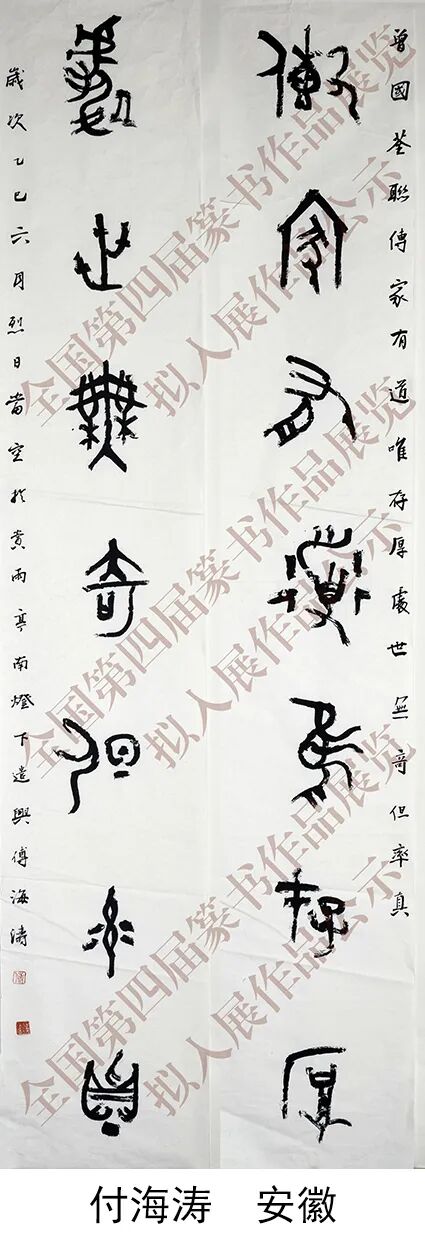 曾國荃聯傳家有道唯存厚處世無奇但率真
傳家有道唯存厚
處世無奇但率真
歲次乙巳六月烈日當空於雨亭南燈下遣興傅海濤
全国第四届篆书作品展览
拟入展作品公示
全国第四届篆书作品展览
拟入展作品公示
全国第四届篆书作品展览
拟入展作品公示
付海涛 安徽